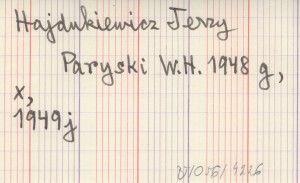 Hajdukiewicz Jerzy
Paryski W.H. 1948 g,
x,
1949 j